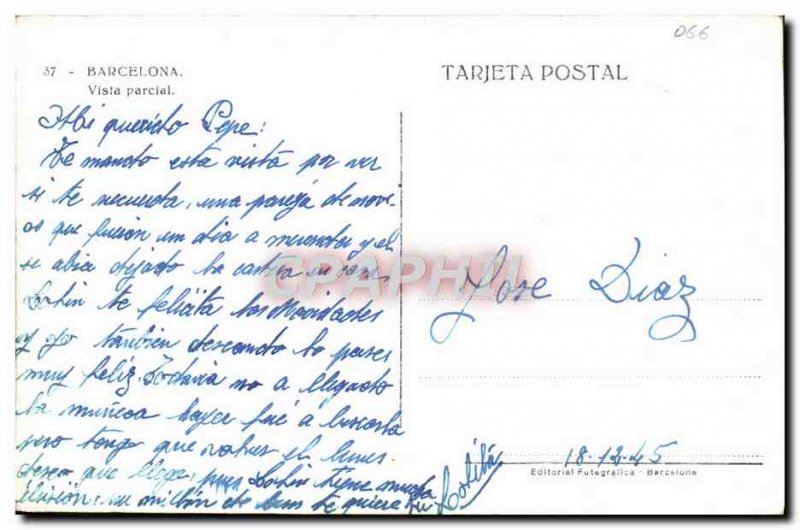 066
37 - BARCELONA.
Vista parcial.
TARJETA POSTAL
Mi querido Pepe:
Te mando esta vista por ver
si te recuerda, una pareja de novi-
os que fueron un dia a merendar y el
se abia dejado la cartera en casa,
te felicita las Navidades
y yo tambien deseando la pases
muy feliz. Todavia no a llegado
la muñeca hayer fué a buscarla
pero tengo que volver el lunes
deseo que llege, pues tiene mucha
ilusión, un millón de besos te quiere tu
Lolita
Jose Diaz
18-12-45
Editorial Fotografica - Barcelona
CPAPHIL